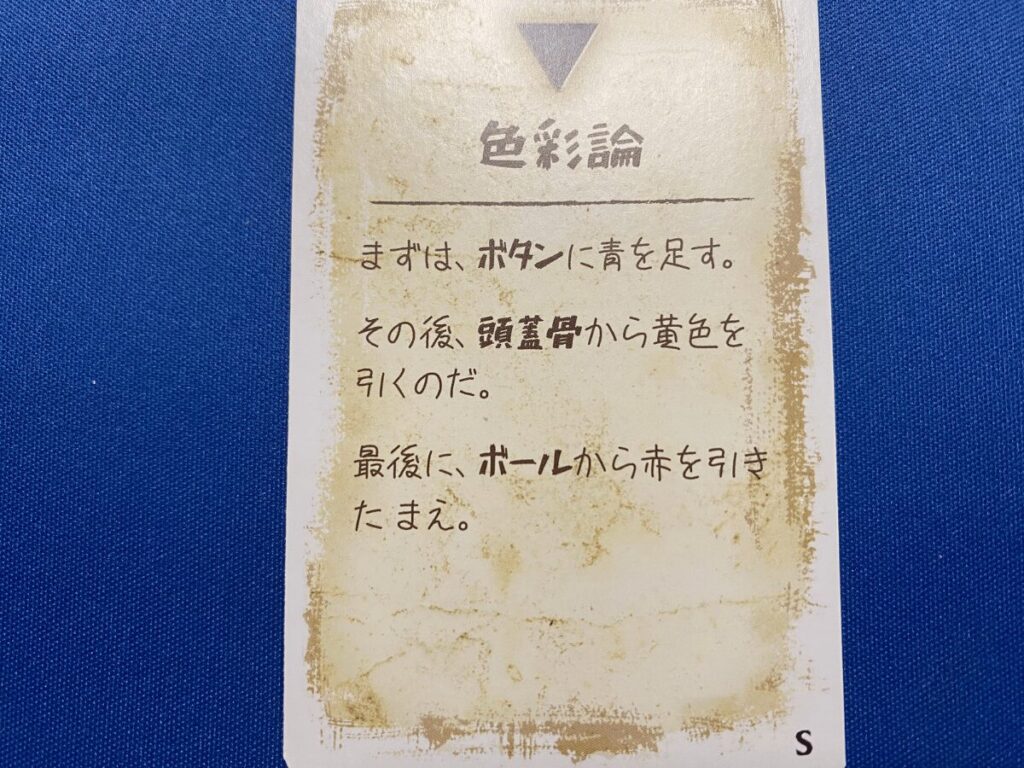 色彩論
まずは、ボタンに青を足す。
その後、頭蓋骨から黄色を
引くのだ。
最後に、ボールから赤を引き
たまえ。
S